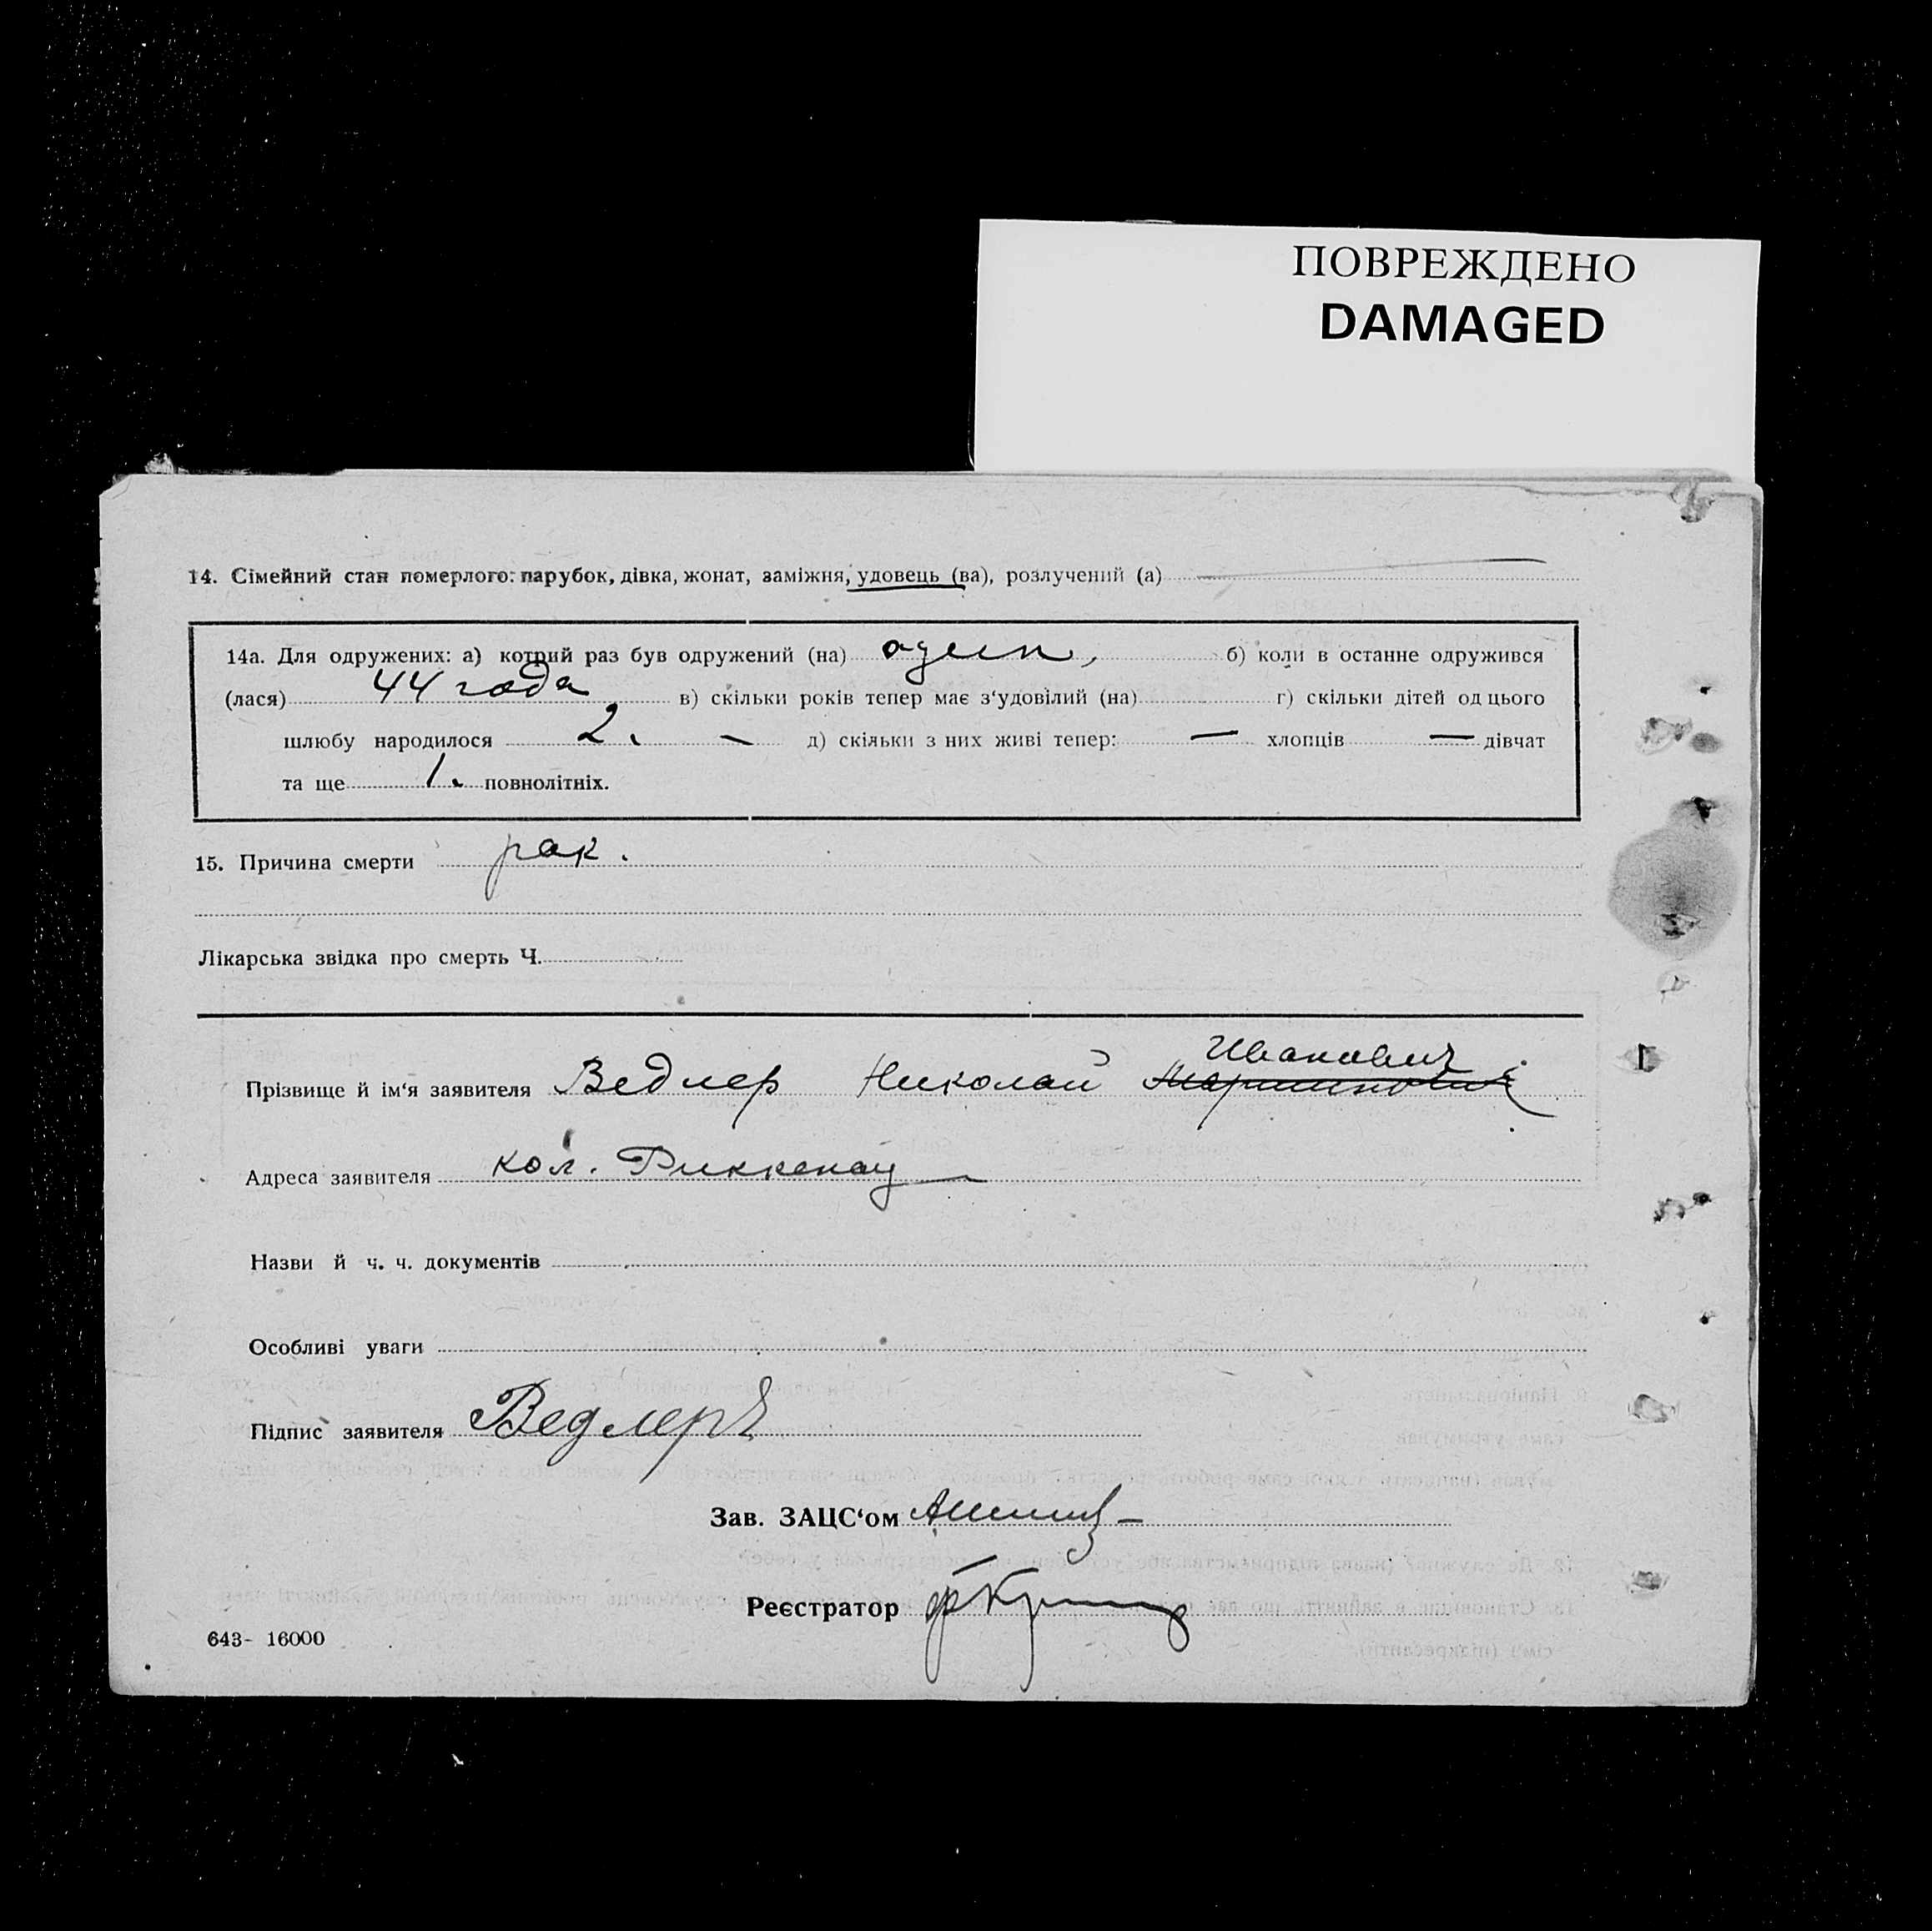 ПОВРЕЖДЕНО
DAMAGED
14. Сімейний стан померлого: парубок, дівка, жонат, заміжня, удовець (ва), розлучений (а)
14а. Для одружених: а) котрий раз був одружений (на) один, б) коли в останне одружився
(лася) 44 года в) скільки років тепер має з‘удовілий (на) г) скільки дітей од цього
шлюбу народилося 2. — д) скільки з них живі тепер: — хлопців — дівчат
та ще 1. повнолітніх.
15. Причина смерти рак.
Лікарська звідка про смерть Ч.
Иванович
Прізвище й ім‘я заявителя Ведлер Николай Мартинович
Адреса заявителя кол. Риккенау
Назви й ч. ч. документів
Особливі уваги
Підпис заявителя Ведлеръ
Зав. ЗАЦС‘ом
Реєстратор
643- 16000